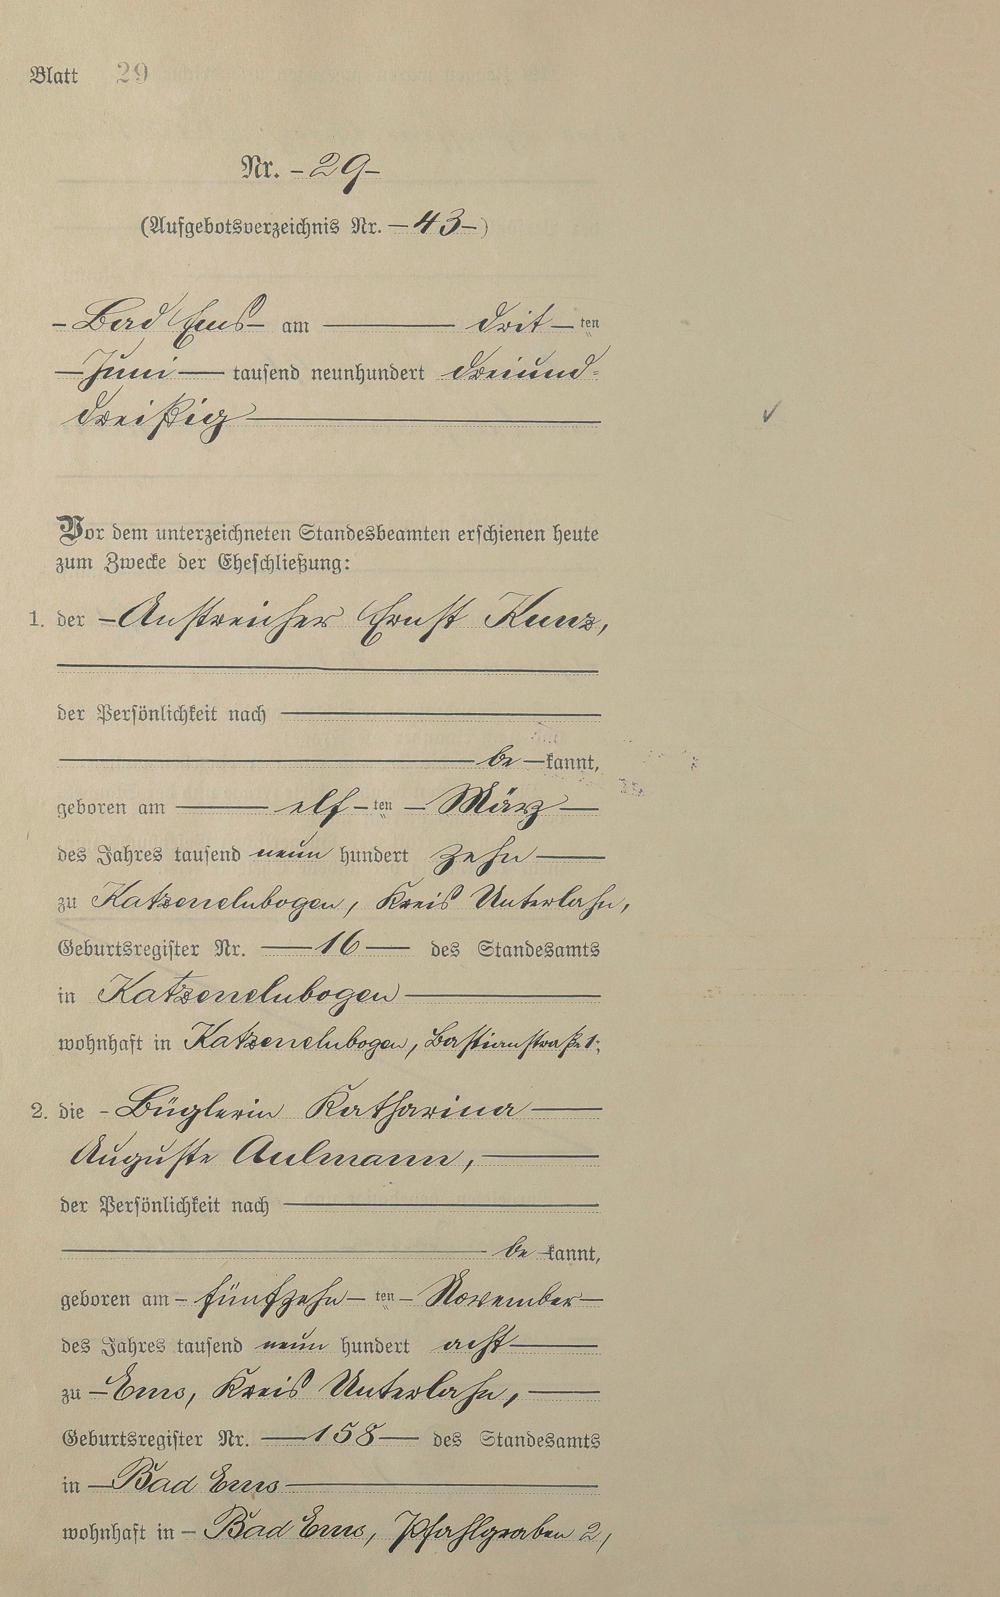 Blatt 29
Nr. – 29 –
(Aufgebotsverzeichnis Nr. – 43 – )
– Bad Ems – am — drit – ten
— Juni — tausend neunhundert dreiund-
dreißig —
Vor dem unterzeichneten Standesbeamten erschienen heute
zum Zwecke der Eheschließung:
1. der – Anstreicher Ernst Kunz,
der Persönlichkeit nach —
— be – kannt,
geboren am — elf – ten – März —
des Jahres tausend neun hundert zehn —
zu Katzenelnbogen, Kreis Unterlahn,
Geburtsregister Nr. — 16 — des Standesamts
in Katzenelnbogen —
wohnhaft in Katzenelnbogen, Bastianstraße 1;
2. die – Büglerin Katharina —
Auguste Aulmann, —
der Persönlichkeit nach —
— be – kannt,
geboren am – fünfzehn – ten – November —
des Jahres tausend neun hundert acht —
zu – Ems, Kreis Unterlahn, —
Geburtsregister Nr. — 158 — des Standesamts
in – Bad Ems —
wohnhaft in – Bad Ems, Pfahlgraben 2,